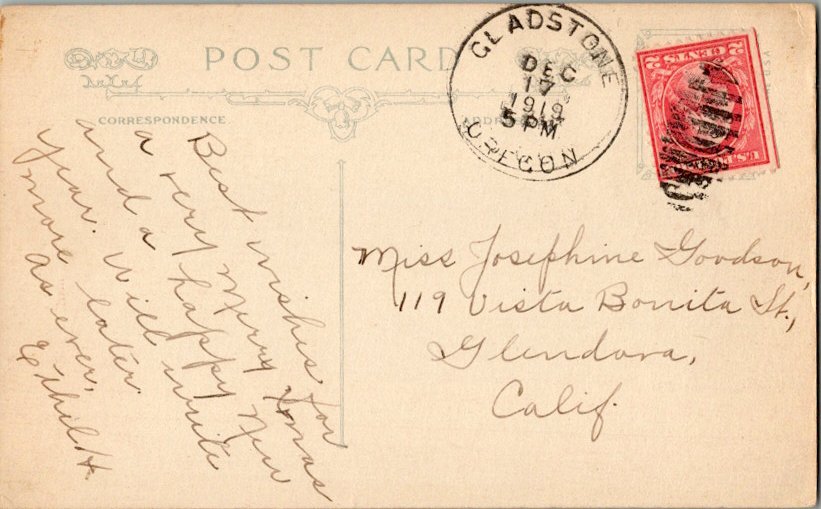 POST CARD
CORRESPONDENCE
GLADSTONE
DEC
17
1919
5 PM
OREGON
2 CENTS 2
U.S. POSTAGE
Best wishes for
a very merry Xmas
and a happy New
year. Will write
more later.
as ever,
Ethil H.
Miss Josephine Goodson,
119 Vista Bonita St.,
Glendora,
Calif.